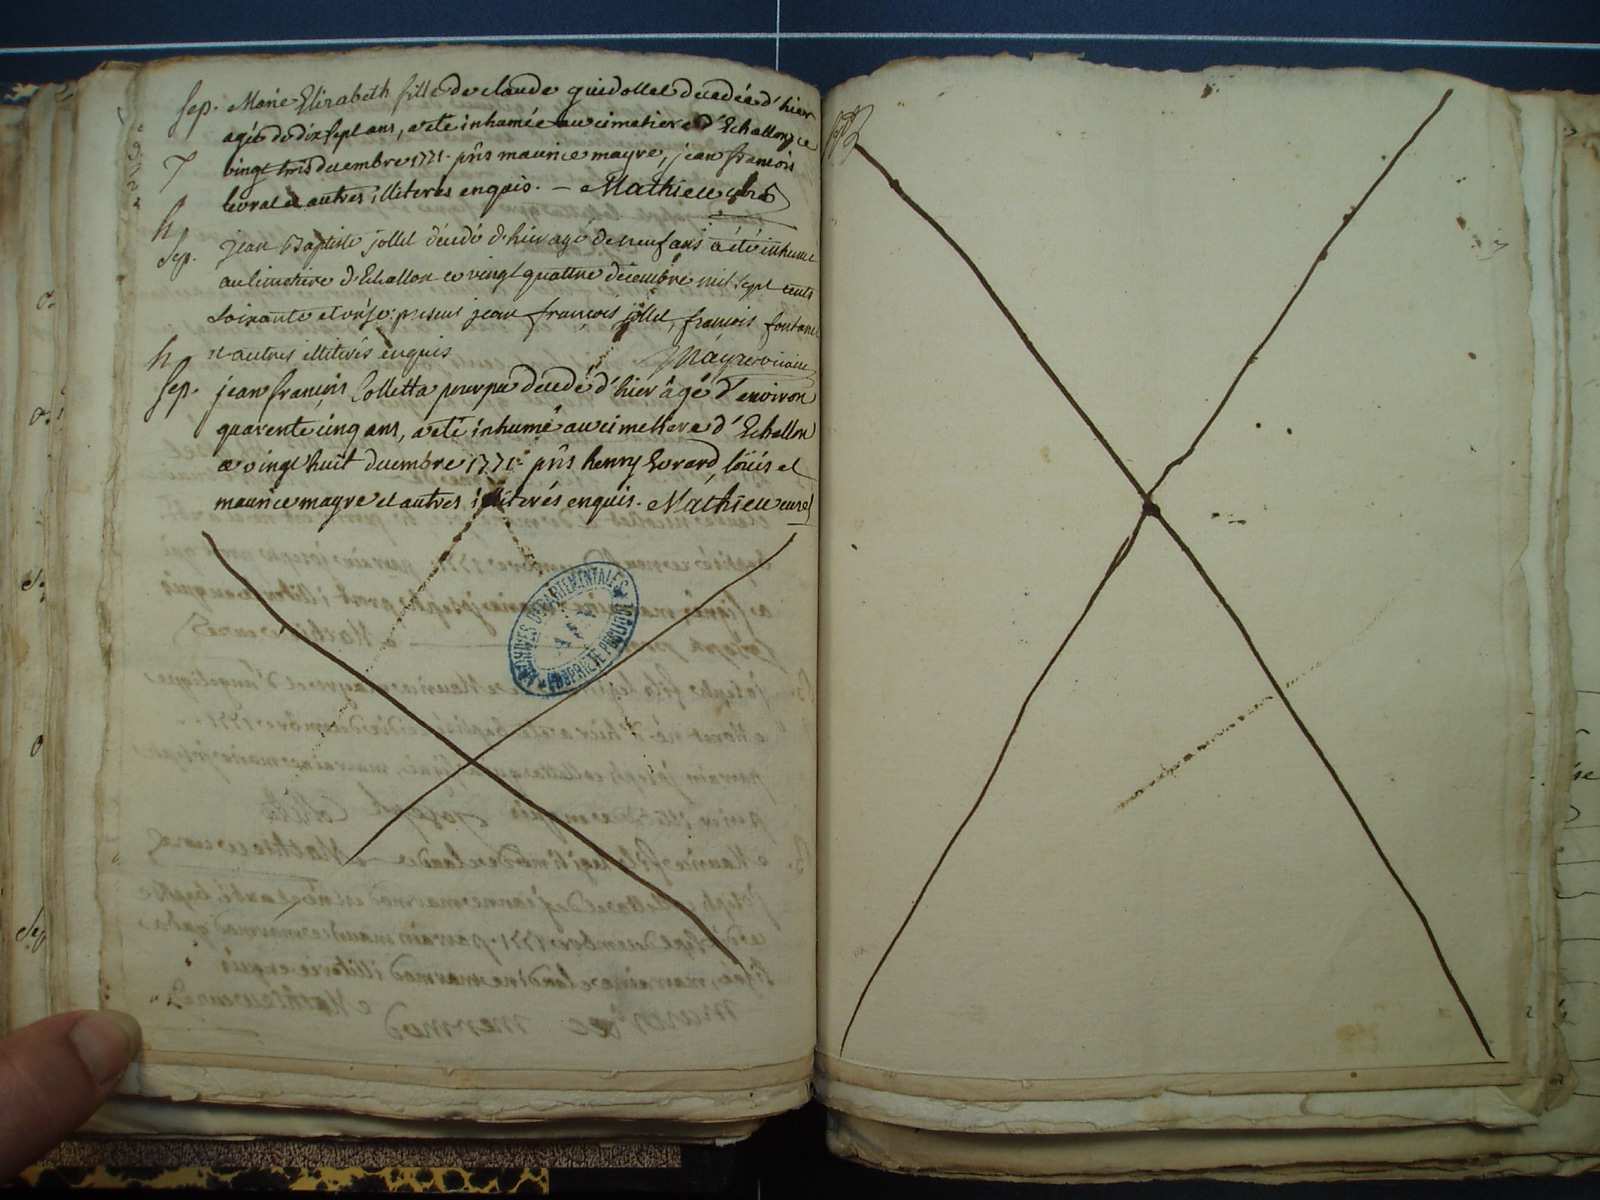 Sep. Marie Elizabeth fille de claude guidollet decedée d'hier
agée de dix sept ans, a eté inhumée au cimetiere d'Echallon ce
vingt trois decembre 1771. pñs maurice mayre, jean francois
levrat et autres illiteres enquis. - Mathieu curé
h
Sep. jean Baptiste jollet décédé d'hier agé de neuf ans a été inhumé
au cimetiere d'Echallon ce vingt quattre décembre mil sept cents
soixante et onze: presens jean françois jollet, françois fontane
h et autres illiterés enquis Mayre vicaire
Sep. jean françois Colletta decedé d'hier âgé d'environ
quarente cinq ans, a eté inhumé au cimettiere d'Echallon
ce vingt huit decembre 1771. pñs henry Evrard, loüis et
maurice mayre et autres illiterés enquis. Mathieu curé
ARCHIVES DEPARTEMENTALES
AIN
PROPRIETE PUBLIQUE